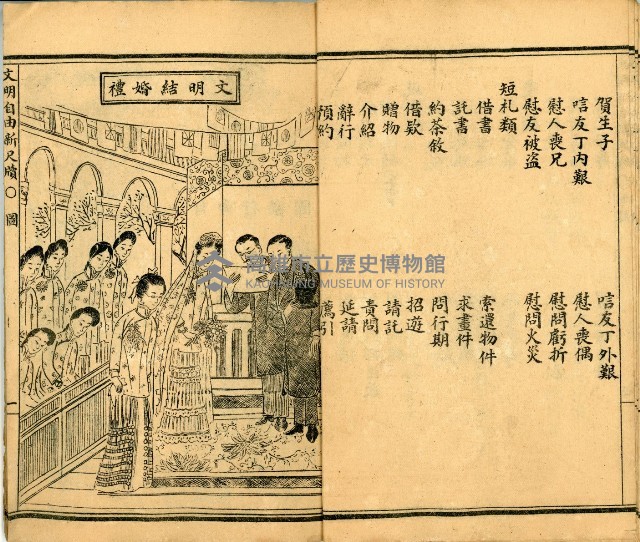 賀生子
唁友丁內艱 唁友丁外艱
慰人喪兄 慰人喪偶
慰友被盜 慰問虧折
慰問火災
短札類
借書 索還物件
託書 求畫件
約茶敘 問行期
借款 招遊
贈物 請託
介紹 責問
辭行 延請
預約 薦引
文明結婚禮
文明自由新尺牘 圖
一
高雄市立歷史博物館
KAOHSIUNG MUSEUM OF HISTORY